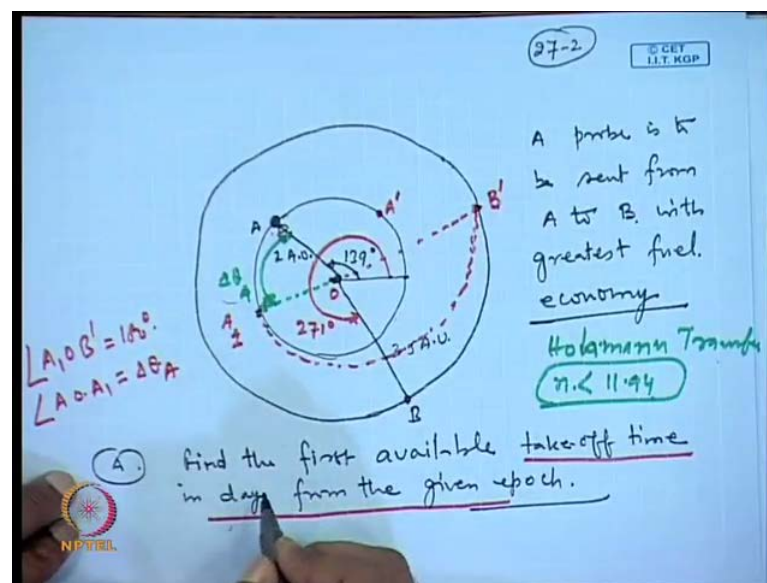 27-2
© CET
I.I.T. KGP
A probe is to
be sent from
A to B with
greatest fuel
economy
Hohmann Transfer
n < 11.94
A
A'
B'
2 A.U.
139°
Δθ
A
O
A1
270°
2.5 A.U.
B
∠A1OB' = 180°.
∠AOA1 = ΔθA
A. find the first available take-off time
in days from the given epoch.
NPTEL